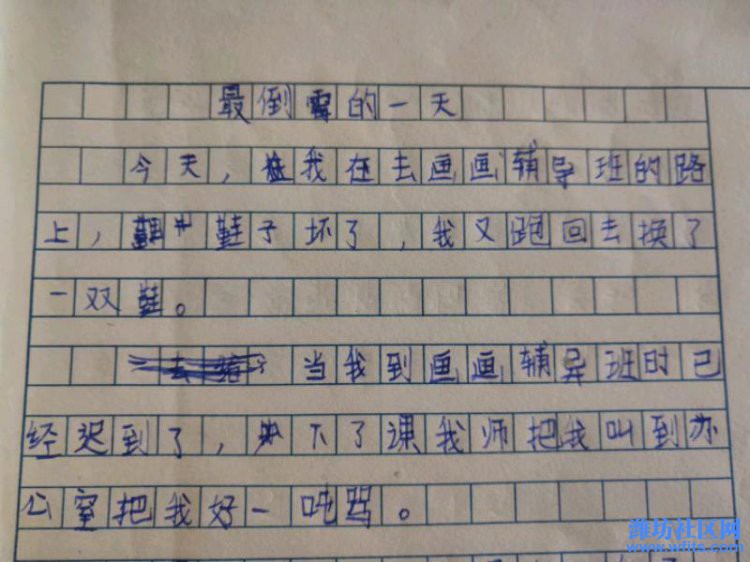 最倒霉的一天
今天，我在去画画辅导班的路
上，鞋子坏了，我又跑回去换了
一双鞋。
当我到画画辅导班时已
经迟到了，下了课我师把我叫到办
公室把我好一吨骂。
潍坊社区网
www.wfits.com